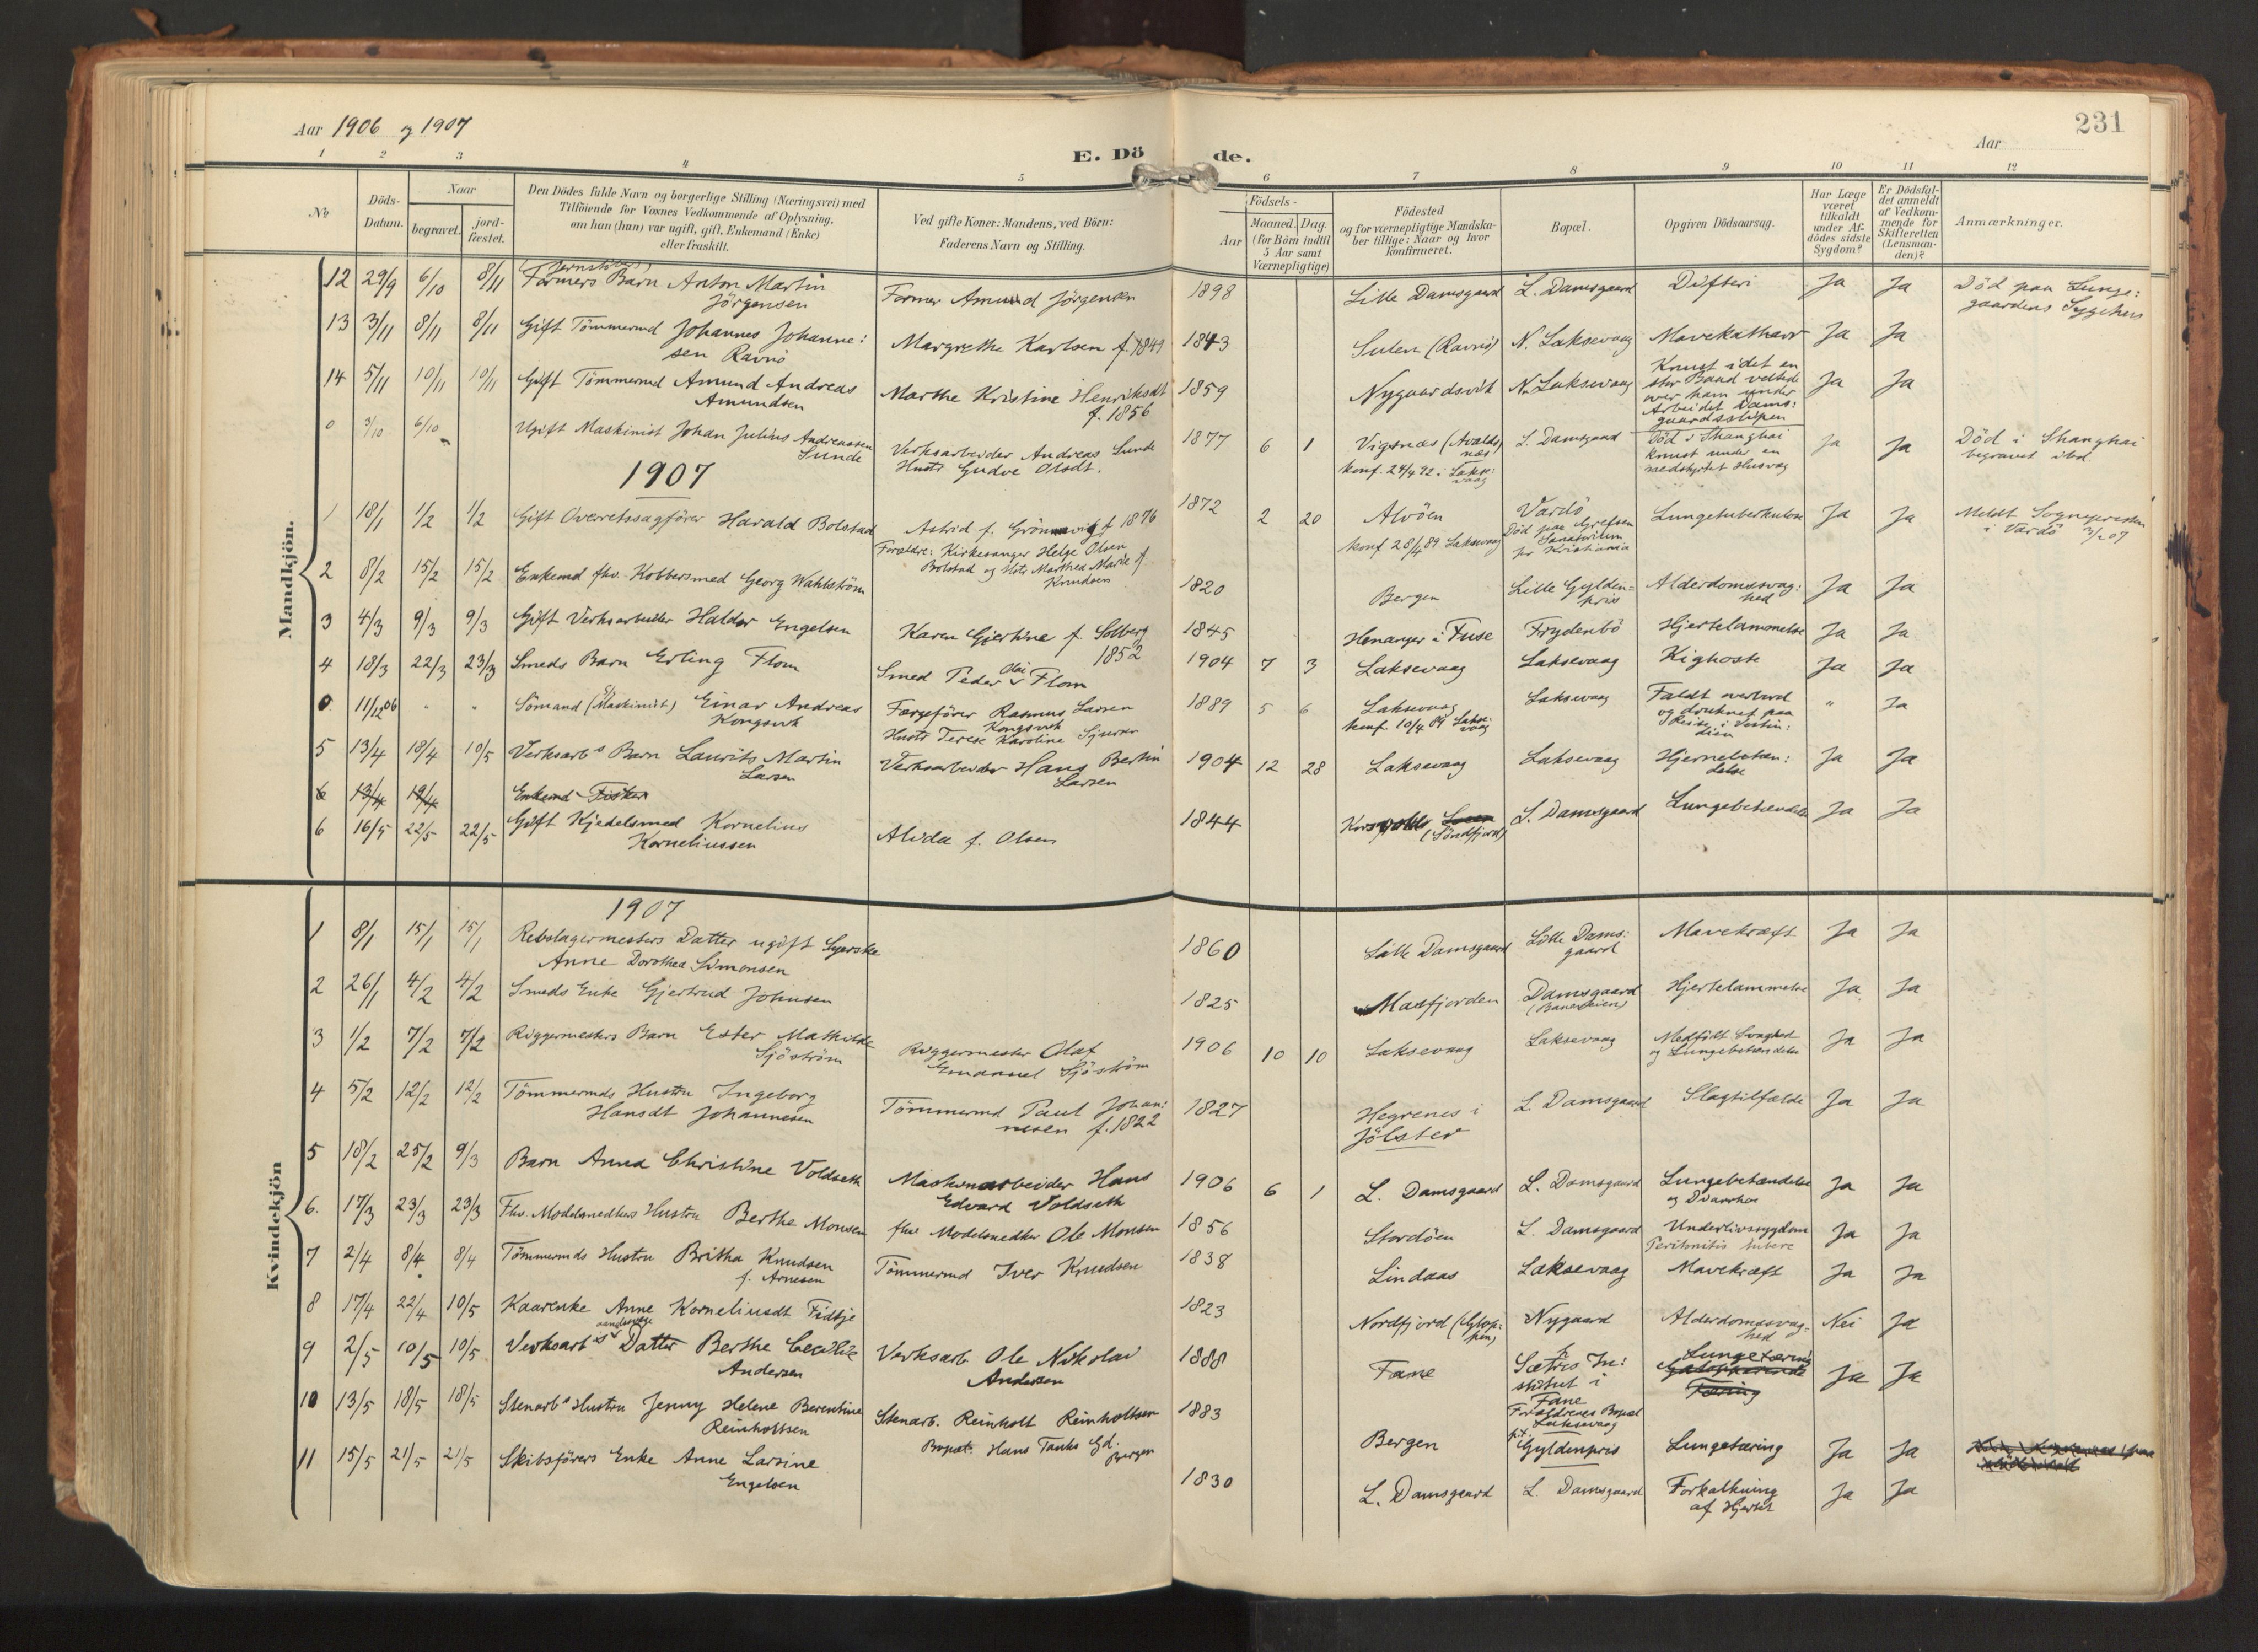 Aar 1906 og 1907
Aar
231
E. Döde.
1 2 3 4 5 6 7 8 9 10 11 12
No
Döds-Datum.
Naar
begravet.
jord-fæstet.
Den Dödes fulde Navn og borgerlige Stilling (Næringsvei) med
Tilföiende for Voxnes Vedkommende af Oplysning,
om han (hun) var ugift, gift, Enkemand (Enke)
eller fraskilt.
Ved gifte Koner: Mandens, ved Börn:
Faderens Navn og Stilling.
Födsels-
Aar
Maaned.
Dag.
(for Börn indtil
5 Aar samt
Værnepligtige)
Födested
og for værnepligtige Mandska-
ber tillige: Naar og hvor
konfirmeret.
Bopæl.
Opgiven Dödsaarsag.
Har Læge
været
tilkaldt
under Af-
dödes sidste
Sygdom?
Er Dödsfal-
det anmeldt
af Vedkom-
mende for
Skifteretten
(Lensman-
den)?
Anmærkninger.
Mandkjön.
12 29/9 6/10 8/11 Formers Barn Anton Martin
Jörgensen
Former Amund Jörgensen 1898 Lille Damsgaard L. Damsgaard Difteri Ja Ja Död paa Lunge:
gaardens Sygehus
13 3/11 8/11 8/11 Gift Tömmermd Johannes Johanne:
sen Ravnö
Margrethe Karlsen f. 1849 1843 Sulen (Ravnö) N. Laksevaag Mavekatharr Ja Ja
14 5/11 10/11 10/11 Gift Tömmermd Amund Andreas
Amundsen
Marthe Kristine Henriksdt
f. 1856
1859 Nygaardsvik N. Laksevaag Knust idet en
stor Baad veltede
over ham under
Arbeidet Dams:
gaardsslippen
Ja Ja
0 3/10 6/10 Ugift Maskinist Johan Julius Andreassen
Sunde
Verksarbeider Andreas Sunde
Hustr Gudve Olsdt.
1877 6 1 Vigsnæs (Avalds
næs
konf. 24/4 92 i Lakse:
vaag
L. Damsgaard Död i Shanghai
knust under en
nedstyrtet Husvæg
Ja Ja Död i Shanghai
begravet ibd.
1907
1 18/1 1/2 1/2 Gift Overretssagförer Harald Bolstad
Astrid f. Grönnevig f 1876
Forældre: Kirkesanger Helge Olsen
Bolstad og Hstr Marthea Marie f.
Knudsen
1872 2 20 Alvöen
konf 28/4 89 Laksevaag
Vardö
Död paa Grefsen
Sanatorium
pr Kristiania
Lungetuberkulose Ja Ja Meldt Sognepresten
i Vardö 3/2 07
2 8/2 15/2 15/2 Enkemd fhv. Kobbersmed Georg Wahlström 1820 Bergen Lille Gylden=
pris
Alderdomssvag:
hed
Ja Ja
3 4/3 9/3 9/3 Gift Verksarbeider Haldor Engelsen
Karen Gjertine f. Solberg
1852
1845 Henanger i Fuse Frydenbö Hjertelammelse Ja Ja
4 18/3 22/3 23/3 Smeds Barn Erling Flom
Smed Peder Olai Flom 1904 7 3 Laksevaag Laksevaag Kighoste Ja Ja
0 11/12 06 " " Sömand (Maskinist) Einar Andreas
Kongsvik
Færgeförer Rasmus Larsen
Kongsvik
Hustr Terese Karoline
1889 5 6 Laksevaag
Laksevaag Faldt overbord
og druknet paa
Reise i Vestin:
dien
" Ja
5 13/4 18/4 10/5 Verksarbs Barn Laurits Martin
Larsen
Verksarbeider Hans Bertin
Larsen
1904 12 28 Laksevaag Laksevaag Hjernebetæn:
delse
Ja Ja
6 13/4 19/4 Enkemd Fisker
6 16/5 22/5 22/5 Gift Kjedelsmed Kornelius
Korneliussen
Alida f. Olsen 1844
(Söndfjord)
L. Damsgaard Lungebetændelse Ja Ja
Kvindekjön
1907
1 8/1 15/1 15/1 Rebslagermesters Datter ugift Syerske
Anne Dorothea Simonsen
1860 Lille Damsgaard Lille Dams:
gaard
Mavekræft Ja Ja
2 26/1 4/2 4/2 Smeds Enke Gjertrud Johnsen 1825 Masfjorden Damsgaard
(Baneveien)
Hjertelammelse Ja Ja
3 1/2 7/2 7/2 Riggermesters Barn Ester Mathilde
Sjöström
Riggermester Olaf
Emanuel Sjöström
1906 10 10 Laksevaag Laksevaag Medfödt Svaghed
og Lungebetændelse
Ja Ja
4 5/2 12/2 12/2 Tömmermds Hustru Ingeborg
Hansdt Johannesen
Tömmermd Paul Johan:
nesen f. 1822
1827 Hegrenes i
Jölster
L. Damsgaard Slagtilfælde Ja Ja
5 18/2 25/2 9/3 Barn Anna Christine Voldseth
Maskinarbeider Hans
Edvard Voldseth
1906 6 1 L. Damsgaard L. Damsgaard Lungebetændelse
og Diarrhoe
Ja Ja
6. 17/3 23/3 23/3 Fhv. Modelsnedkers Hustru Berthe Monsen
fhv Modelsnedker Ole Monsen 1856 Stordöen L. Damsgaard Underlivssygdom
Peritonitis tuberc
Ja Ja
7 2/4 8/4 8/4 Tömmermds Hustru Britha Knudsen
f. Arnesen
Tömmermd Iver Knudsen 1838 Lindaas Laksevaag Mavekræft Ja Ja
8 17/4 22/4 10/5 Kaarenke Anne Korneliusdt Fidtje 1823 Nordfjord (Glop:
pen)
Nygaard Alderdomssvag=
hed
Nei Ja
9 2/5 10/5 10/5 Verksarbs aandssvage Datter Berthe Cecilie
Andersen
Verksarb. Ole Nikolai
Andersen
1888 Fane Sætres In:
stitut i
Fane
Forældrenes Bopæl
Laksevaag
Lungetæring
Galopperende
Tæring
Ja Ja
10 13/5 18/5 18/5 Stenarbs Hustru Jenny Helene Berentine
Reinholtsen
Stenarb. Reinholt Reinholtsen
Bopæl. Hans Tanks Gd.
Bergen
1883 Bergen p.t.
Gyldenpris
Lungetæring Ja Ja
11 15/5 21/5 21/5 Skibsförers Enke Anne Larsine
Engelsen
1830 L. Damsgaard L. Damsgaard Forkalkning
af Hjertet
Ja Ja